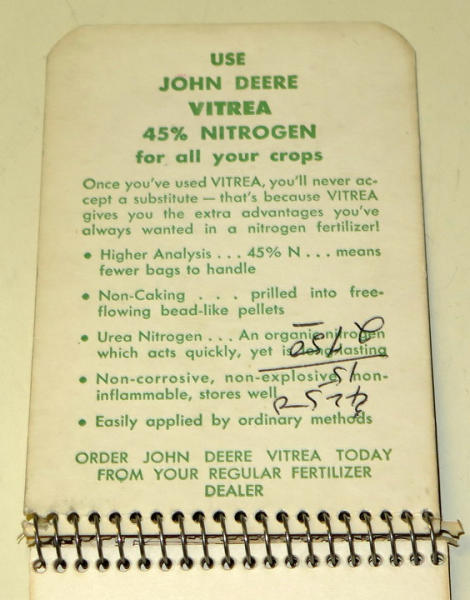 USE
JOHN DEERE
VITREA
45% NITROGEN
for all your crops
Once you've used VITREA, you'll never ac-
cept a substitute — that's because VITREA
gives you the extra advantages you've
always wanted in a nitrogen fertilizer!
• Higher Analysis . . . 45% N . . . means
fewer bags to handle
• Non-Caking . . . prilled into free-
flowing bead-like pellets
• Urea Nitrogen . . . An organic nitrogen
which acts quickly, yet is longlasting
• Non-corrosive, non-explosive, non-
inflammable, stores well
• Easily applied by ordinary methods
ORDER JOHN DEERE VITREA TODAY
FROM YOUR REGULAR FERTILIZER
DEALER